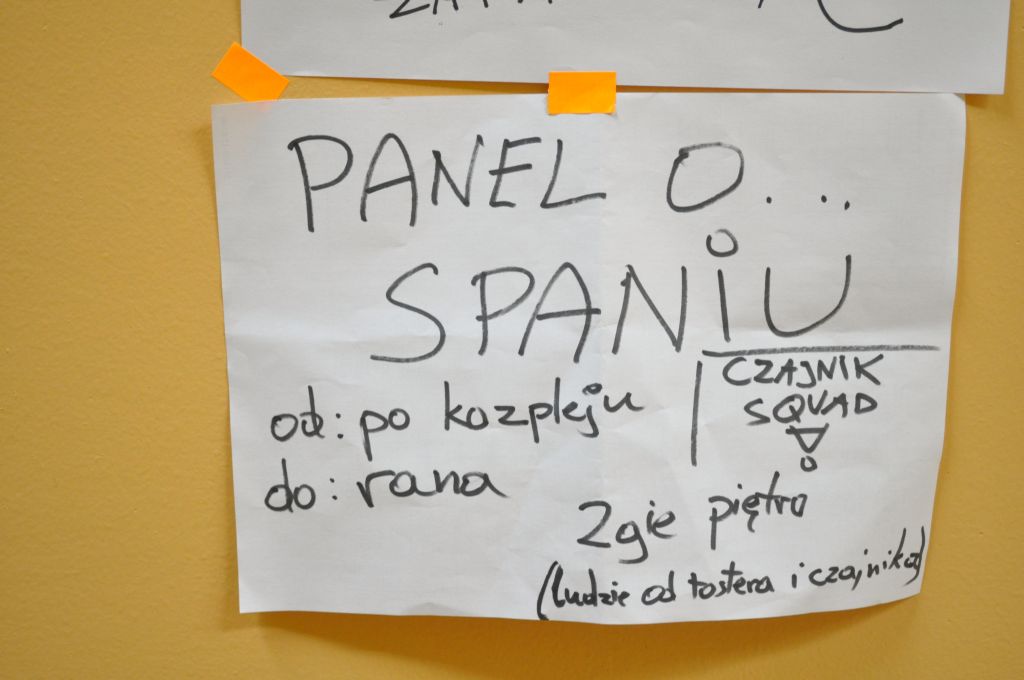 PANEL O...
SPANiU
od: po kozpleju
do: rana
CZAJNIK
SQUAD
2gie piętro
(ludzie od tostera i czajnika)